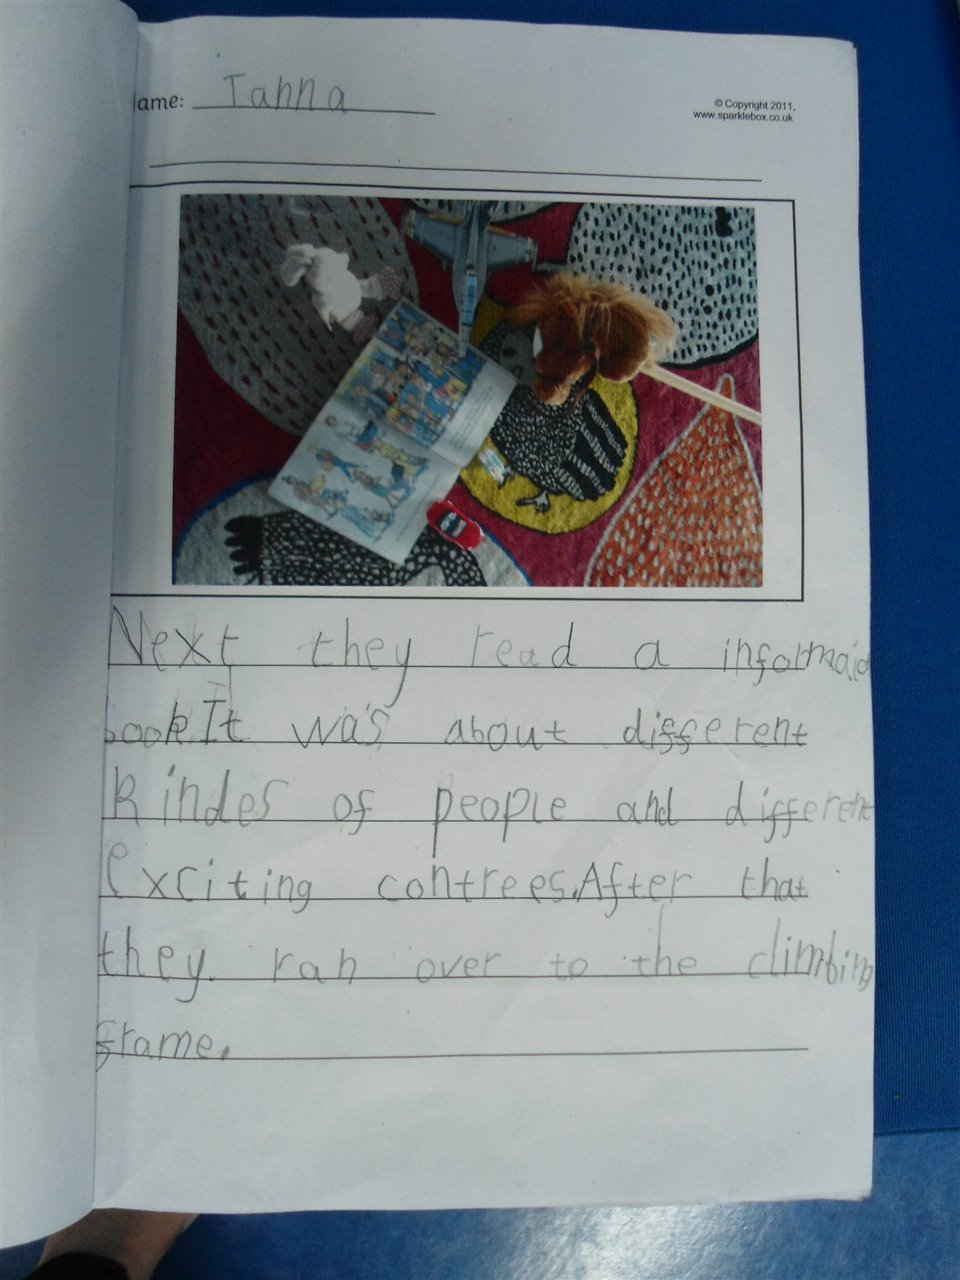 ame: Tahna
© Copyright 2011,
www.sparklebox.co.uk
Next they read a informaid
book. It was about different
kindes of people and different
exciting contrees. After that
they ran over to the climbing
frame.